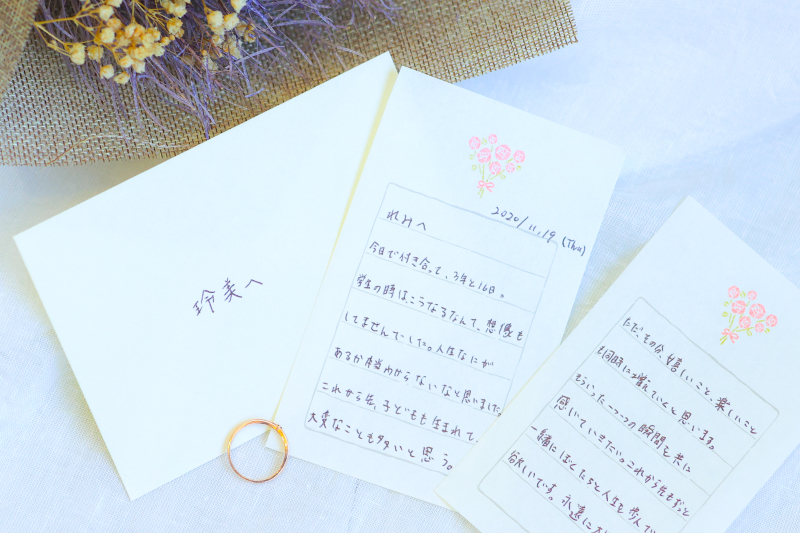 玲美へ
2020/11.19 (Thu)
れみへ
今日で付き合って、3年と16日。
学生の時はこうなるなんて、想像も
してませんでした。人生なにが
あるか本当わからないなと思いました。
これから先、子どもも生まれて、
大変なことも多いと思う。
ただ、その分、嬉しいこと、楽しいこと
も同時に増えていくと思います。
そういった一つ一つの瞬間を共に
感じていきたい。これから先もずっと
一緒にぼくたちと人生を歩んで
欲しいです。永遠に